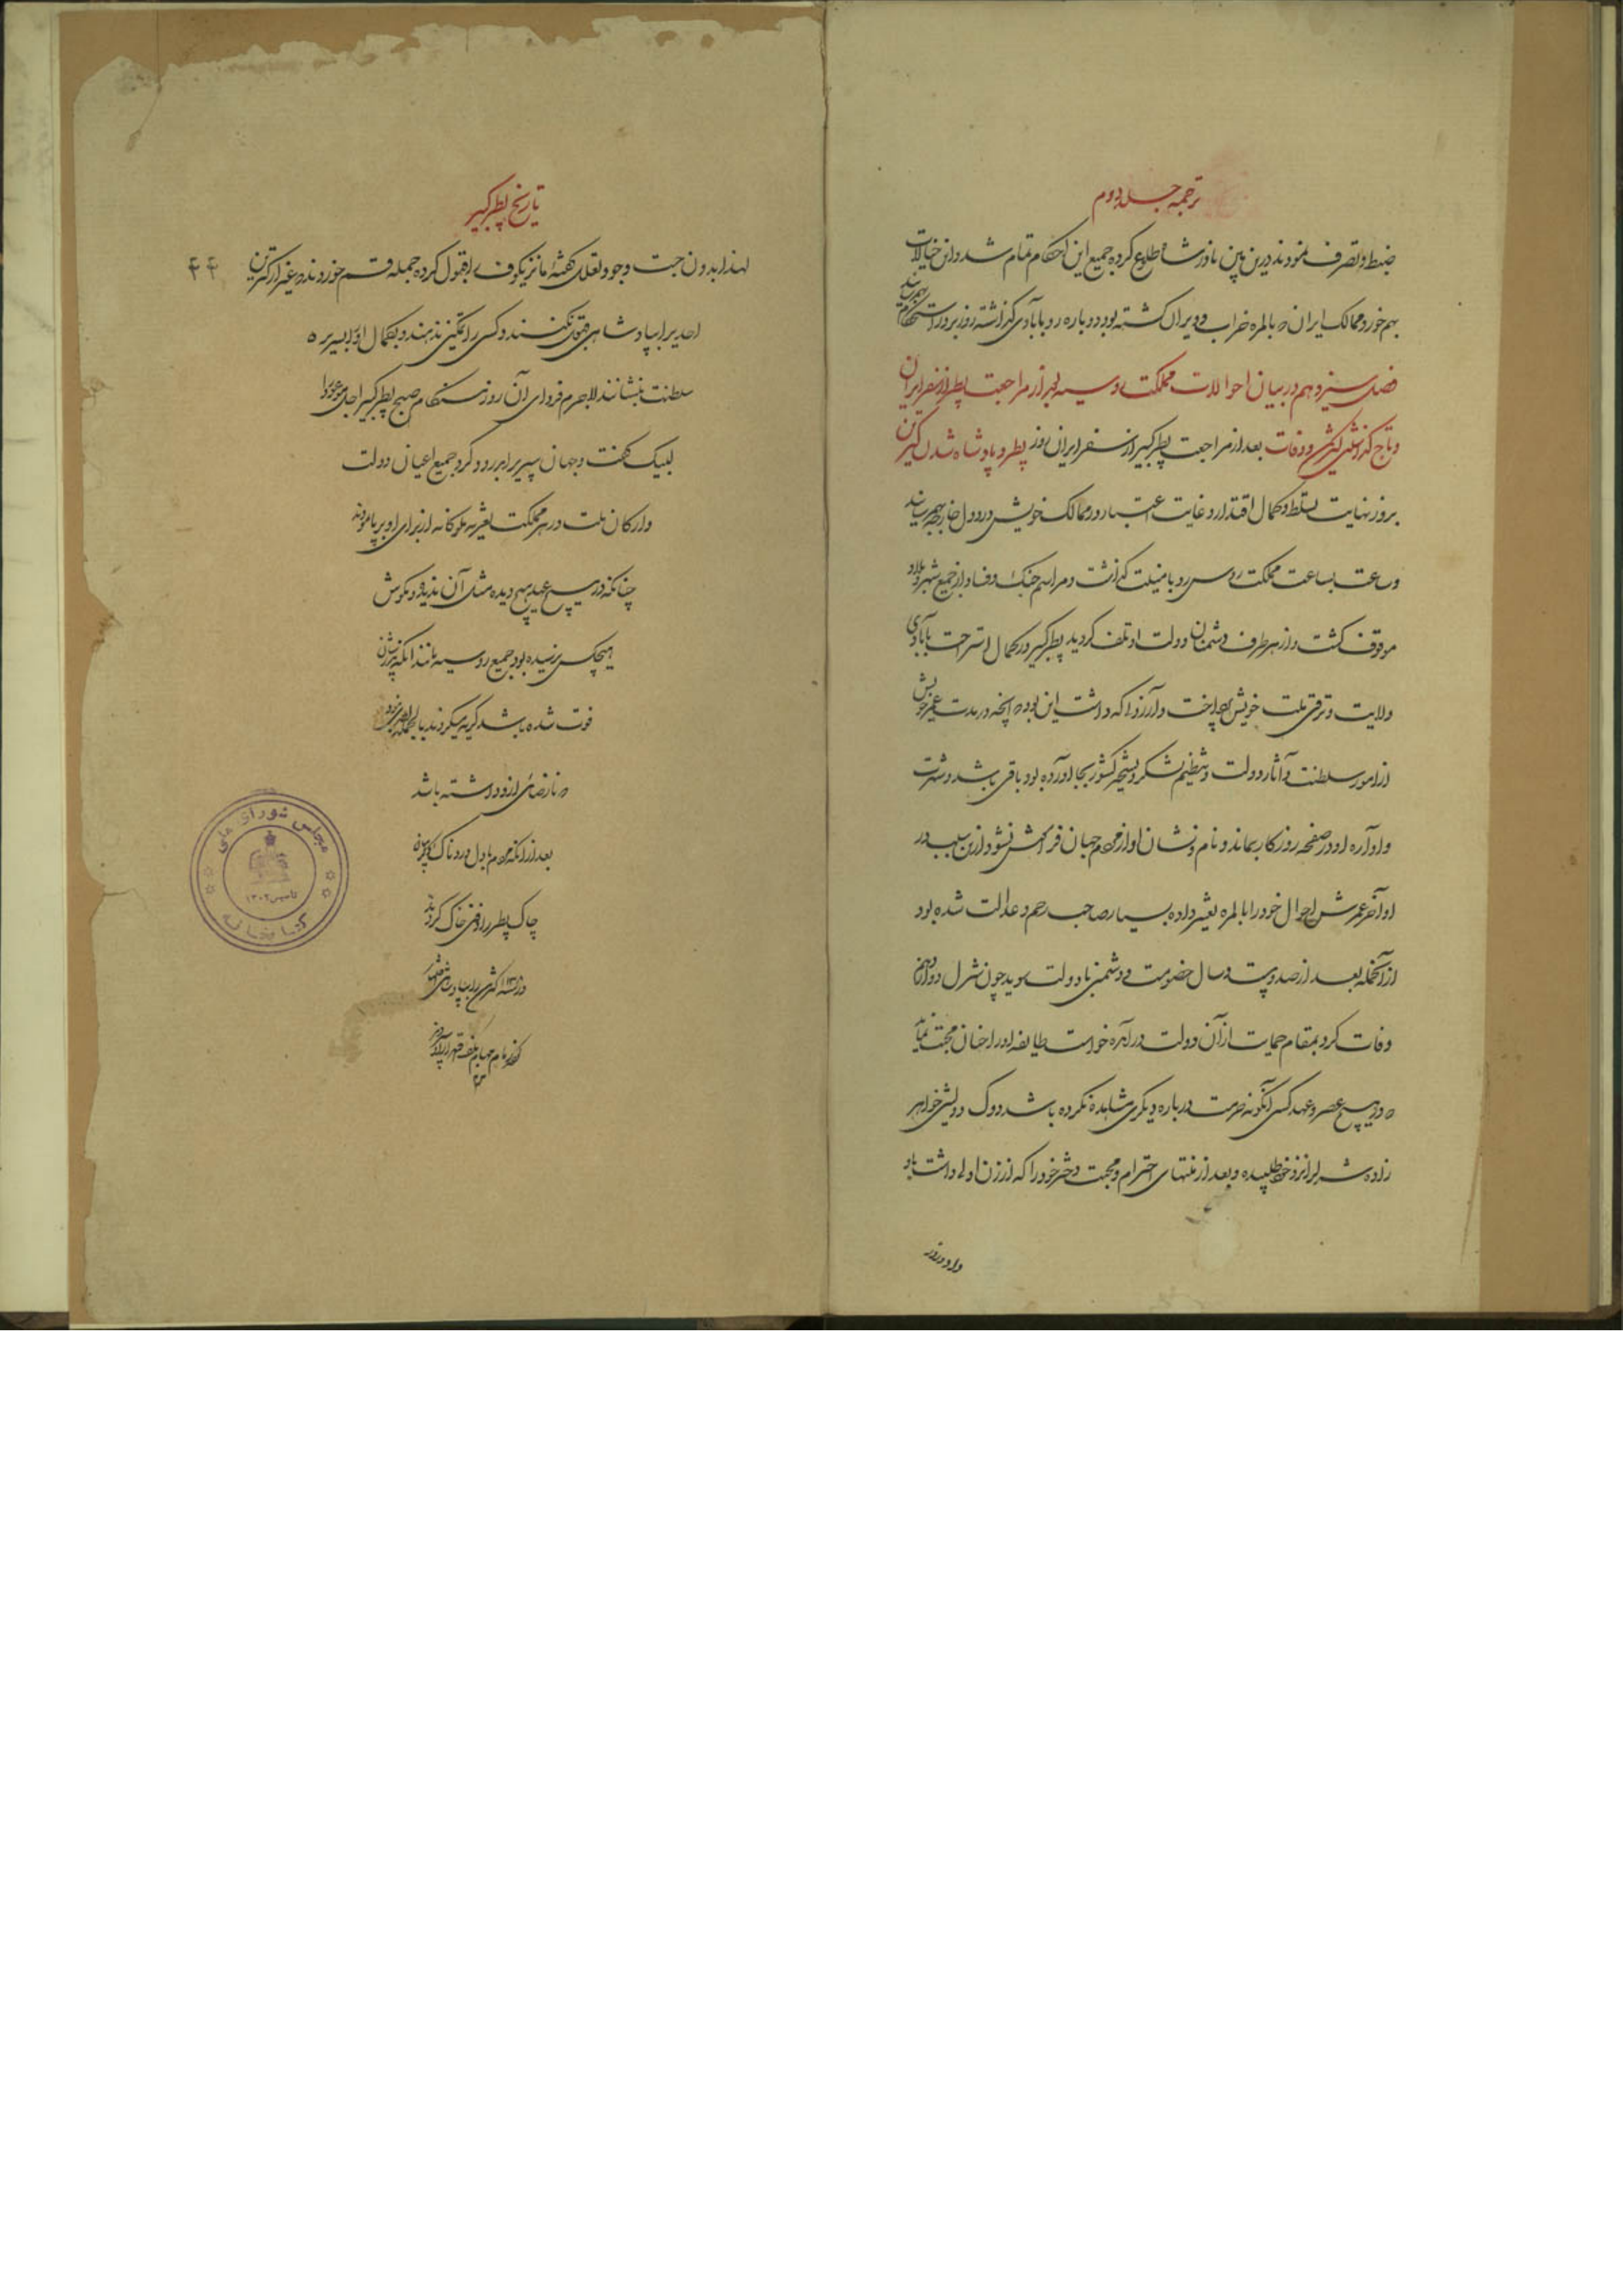 ترجمه جلد دوم
ضبط و تصرف نمودند درین بین نادرشاه طلوع کرده جمیع این احکام تمام شد و این خیالات
بهم خورد و ممالک ایران که بالمره خراب و ویران گشته بود دوباره رو بآبادی گذاشته روز بروز استحکام بهم رساند
فصل سیزدهم در بیان احوالات مملکت روسیه بعد از مراجعت پطر از سفر ایران
و تاج گذاشتن کترین و وفات پطر و پادشاه شدن کترین بعد از مراجعت پطر کبیر از سفر ایران روز
بروز نهایت تسلط و کمال اقتدار و غایت اعتبار در ممالک خویش و در دول خارجه بهم رسانید
و ساعت بساعت مملکت روس رو بامنیت گذاشت و مراسم جنگ و فساد از جمیع شهر و بلاد
موقوف گشت و از هر طرف دشمنان دولت او تلف گردید پطر کبیر در کمال استراحت بآبادی
ولایت و ترقی ملت خویش پرداخت و آرزو که داشت این بود که آنچه در مدت عمر خویش
از امور سلطنت و آثار دولت و تنظیم لشکر و تسخیر کشور بجا آورده بود باقی باشد و شهرت
و آوازه او در صفحه روزگار بماند و نام و نشان او از مردم جهان فراموش نشود ازین سبب در
اواخر عمرش احوال خود را بالمره تغییر داده بسیار صاحب رحم و عدالت شده بود
از آنجمله بعد از صد و بیست سال خصومت و دشمنی با دولت سوید چون شرل دوازدهم
وفات کرد بمقام حمایت از آن دولت در آمده خواست بطایفه او را چنان محبت نماید
که در هیچ عصر و عهد کسی آنگونه حرمت درباره دیگری مشاهده نکرده باشد دوک دولشتین خواهر
زاده شرل را نزد خود طلبیده و بعد از منتهای احترام و محبت دختر خود را که از زن اول داشت باو
داد و در روز
تاریخ پطر کبیر
لهذا بدون جهت وجود تعلل گفته مانزیکوف را قبول کرده جمله قسم خوردند که غیر از کترین ۴۴
احدی را بپادشاهی قبول نکنند و کسی را تمکین ندهند و بکمال او را بسریر
سلطنت بنشانند لاجرم فردای آن روز هنگام صبح پطر کبیر اجل موعود را
لبیک گفت و جهان سپری را بدرود کرد جمیع اعیان دولت
و ارکان ملت در هر مملکت تعزیه ملوکانه از برای او برپا نمودند
چنانکه در هیچ عهد هیچ دیده مثل آن ندیده و بگوش
هیچکس نرسیده بود جمیع روسیه مانند آنکه پدرشان
فوت شده باشد گریه میکردند
که نارضائی ازو داشته باشد
بعد از آنکه مردم با دل دردناک و سینه
چاک پطر را دفن خاک کردند
در